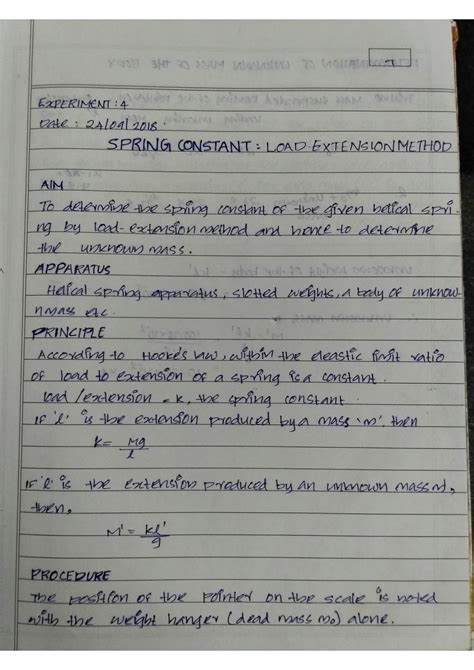 EXPERIMENT: 4
Date : 24/09/2018.
SPRING CONSTANT : LOAD-EXTENSION METHOD
AIM
To determine the spring constant of the given helical spri-
ng by load-extension method and hence to determine
the unknown mass.
APPARATUS
Helical spring apparatus, slotted weights, a body of unknow-
n mass etc.
PRINCIPLE
According to Hooke's law, within the elastic limit ratio
of load to extension of a spring is a constant.
load /extension = k, the spring constant.
IF 'l' is the extension produced by a mass 'm', then
k = Mg
l
IF 'l' is the extension produced by an unknown mass m',
then,
M' = kl'
g
PROCEDURE
The position of the pointer on the scale is noted
with the weight hanger (dead mass m0) alone.